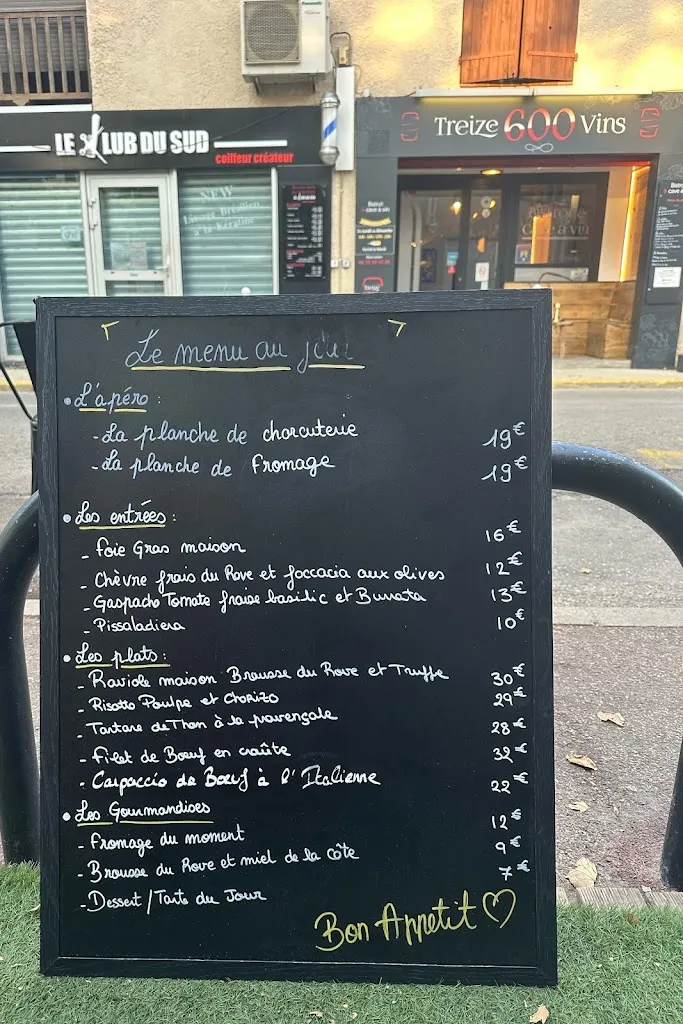 LE KLUB DU SUD
coiffeur créateur
NEW
Treize 600 Vins
Bistrot
Le menu au jour
• L'apéro :
- La planche de charcuterie 19€
- La planche de fromage 19€
• Les entrées :
- Foie Gras maison 16€
- Chèvre frais du Rove et foccacia aux olives 12€
- Gaspacho Tomate fraise basilic et Burrata 13€
- Pissaladiera 10€
• Les plats :
- Raviole maison Brousse du Rove et Truffe 30€
- Risotto Poulpe et Chorizo 29€
- Tartare de Thon à la provençale 28€
- Filet de Bœuf en croûte 32€
- Carpaccio de Bœuf à l'Italienne 22€
• Les Gourmandises
- Fromage du moment 12€
- Brousse du Rove et miel de la côte 9€
- Dessert / Tarte du Jour 7€
Bon Appetit ♡